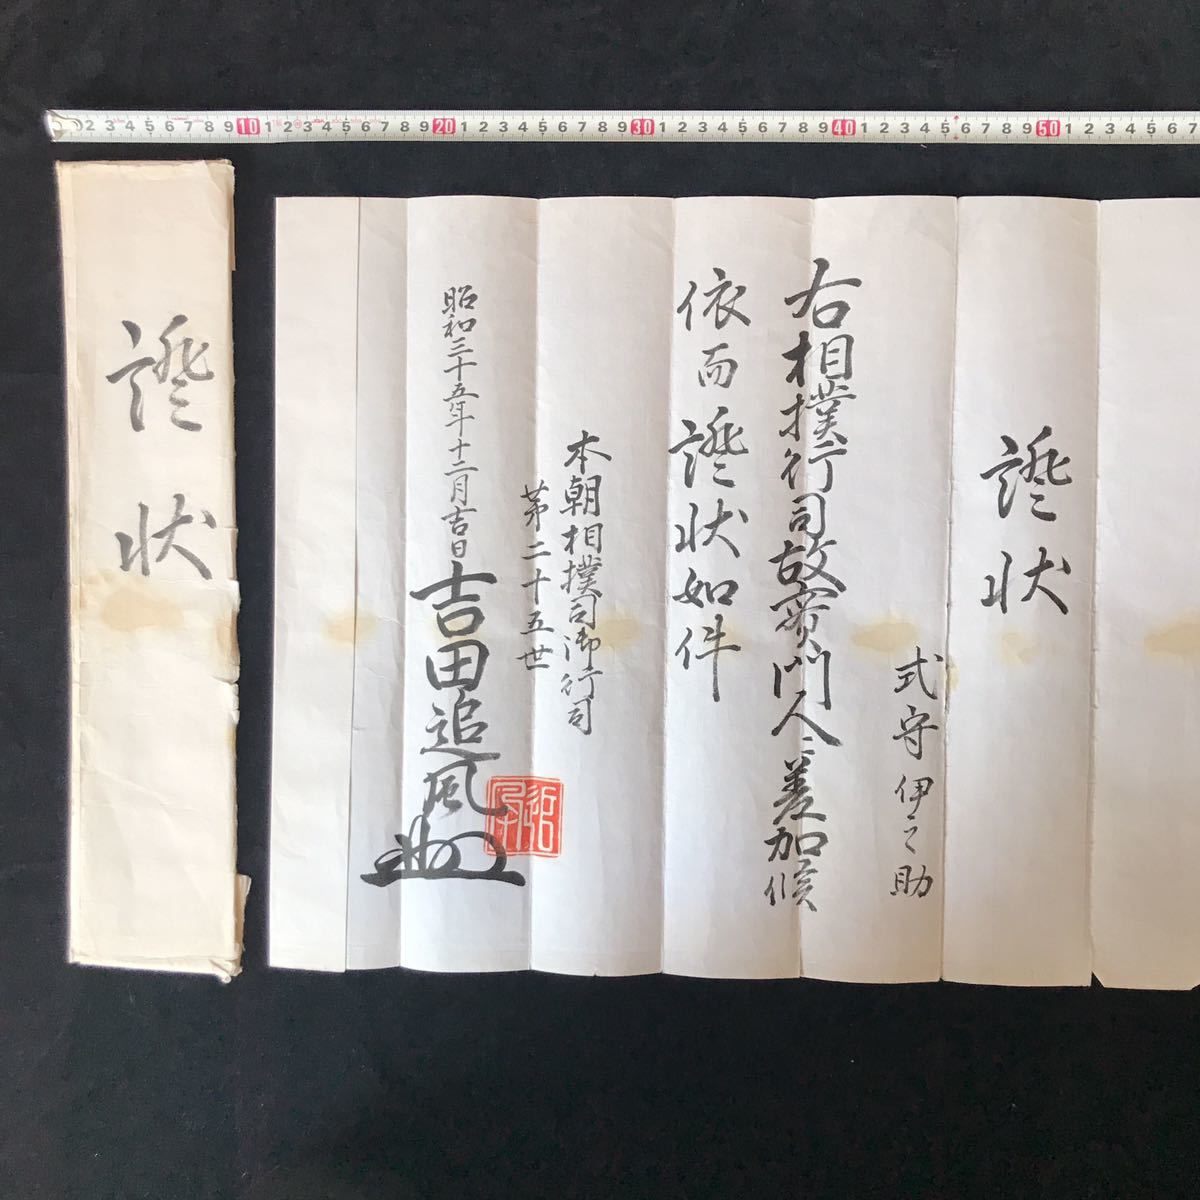 證状
式守伊之助
右相撲行司故實門人差加候
依而證状如件
本朝相撲司御行司
第二十五世
昭和三十五年十二月吉日
吉田追風
證状
2 3 4 5 6 7 8 9 10 1 2 3 4 5 6 7 8 9 20 1 2 3 4 5 6 7 8 9 30 1 2 3 4 5 6 7 8 9 40 1 2 3 4 5 6 7 8 9 50 1 2 3 4 5 6 7